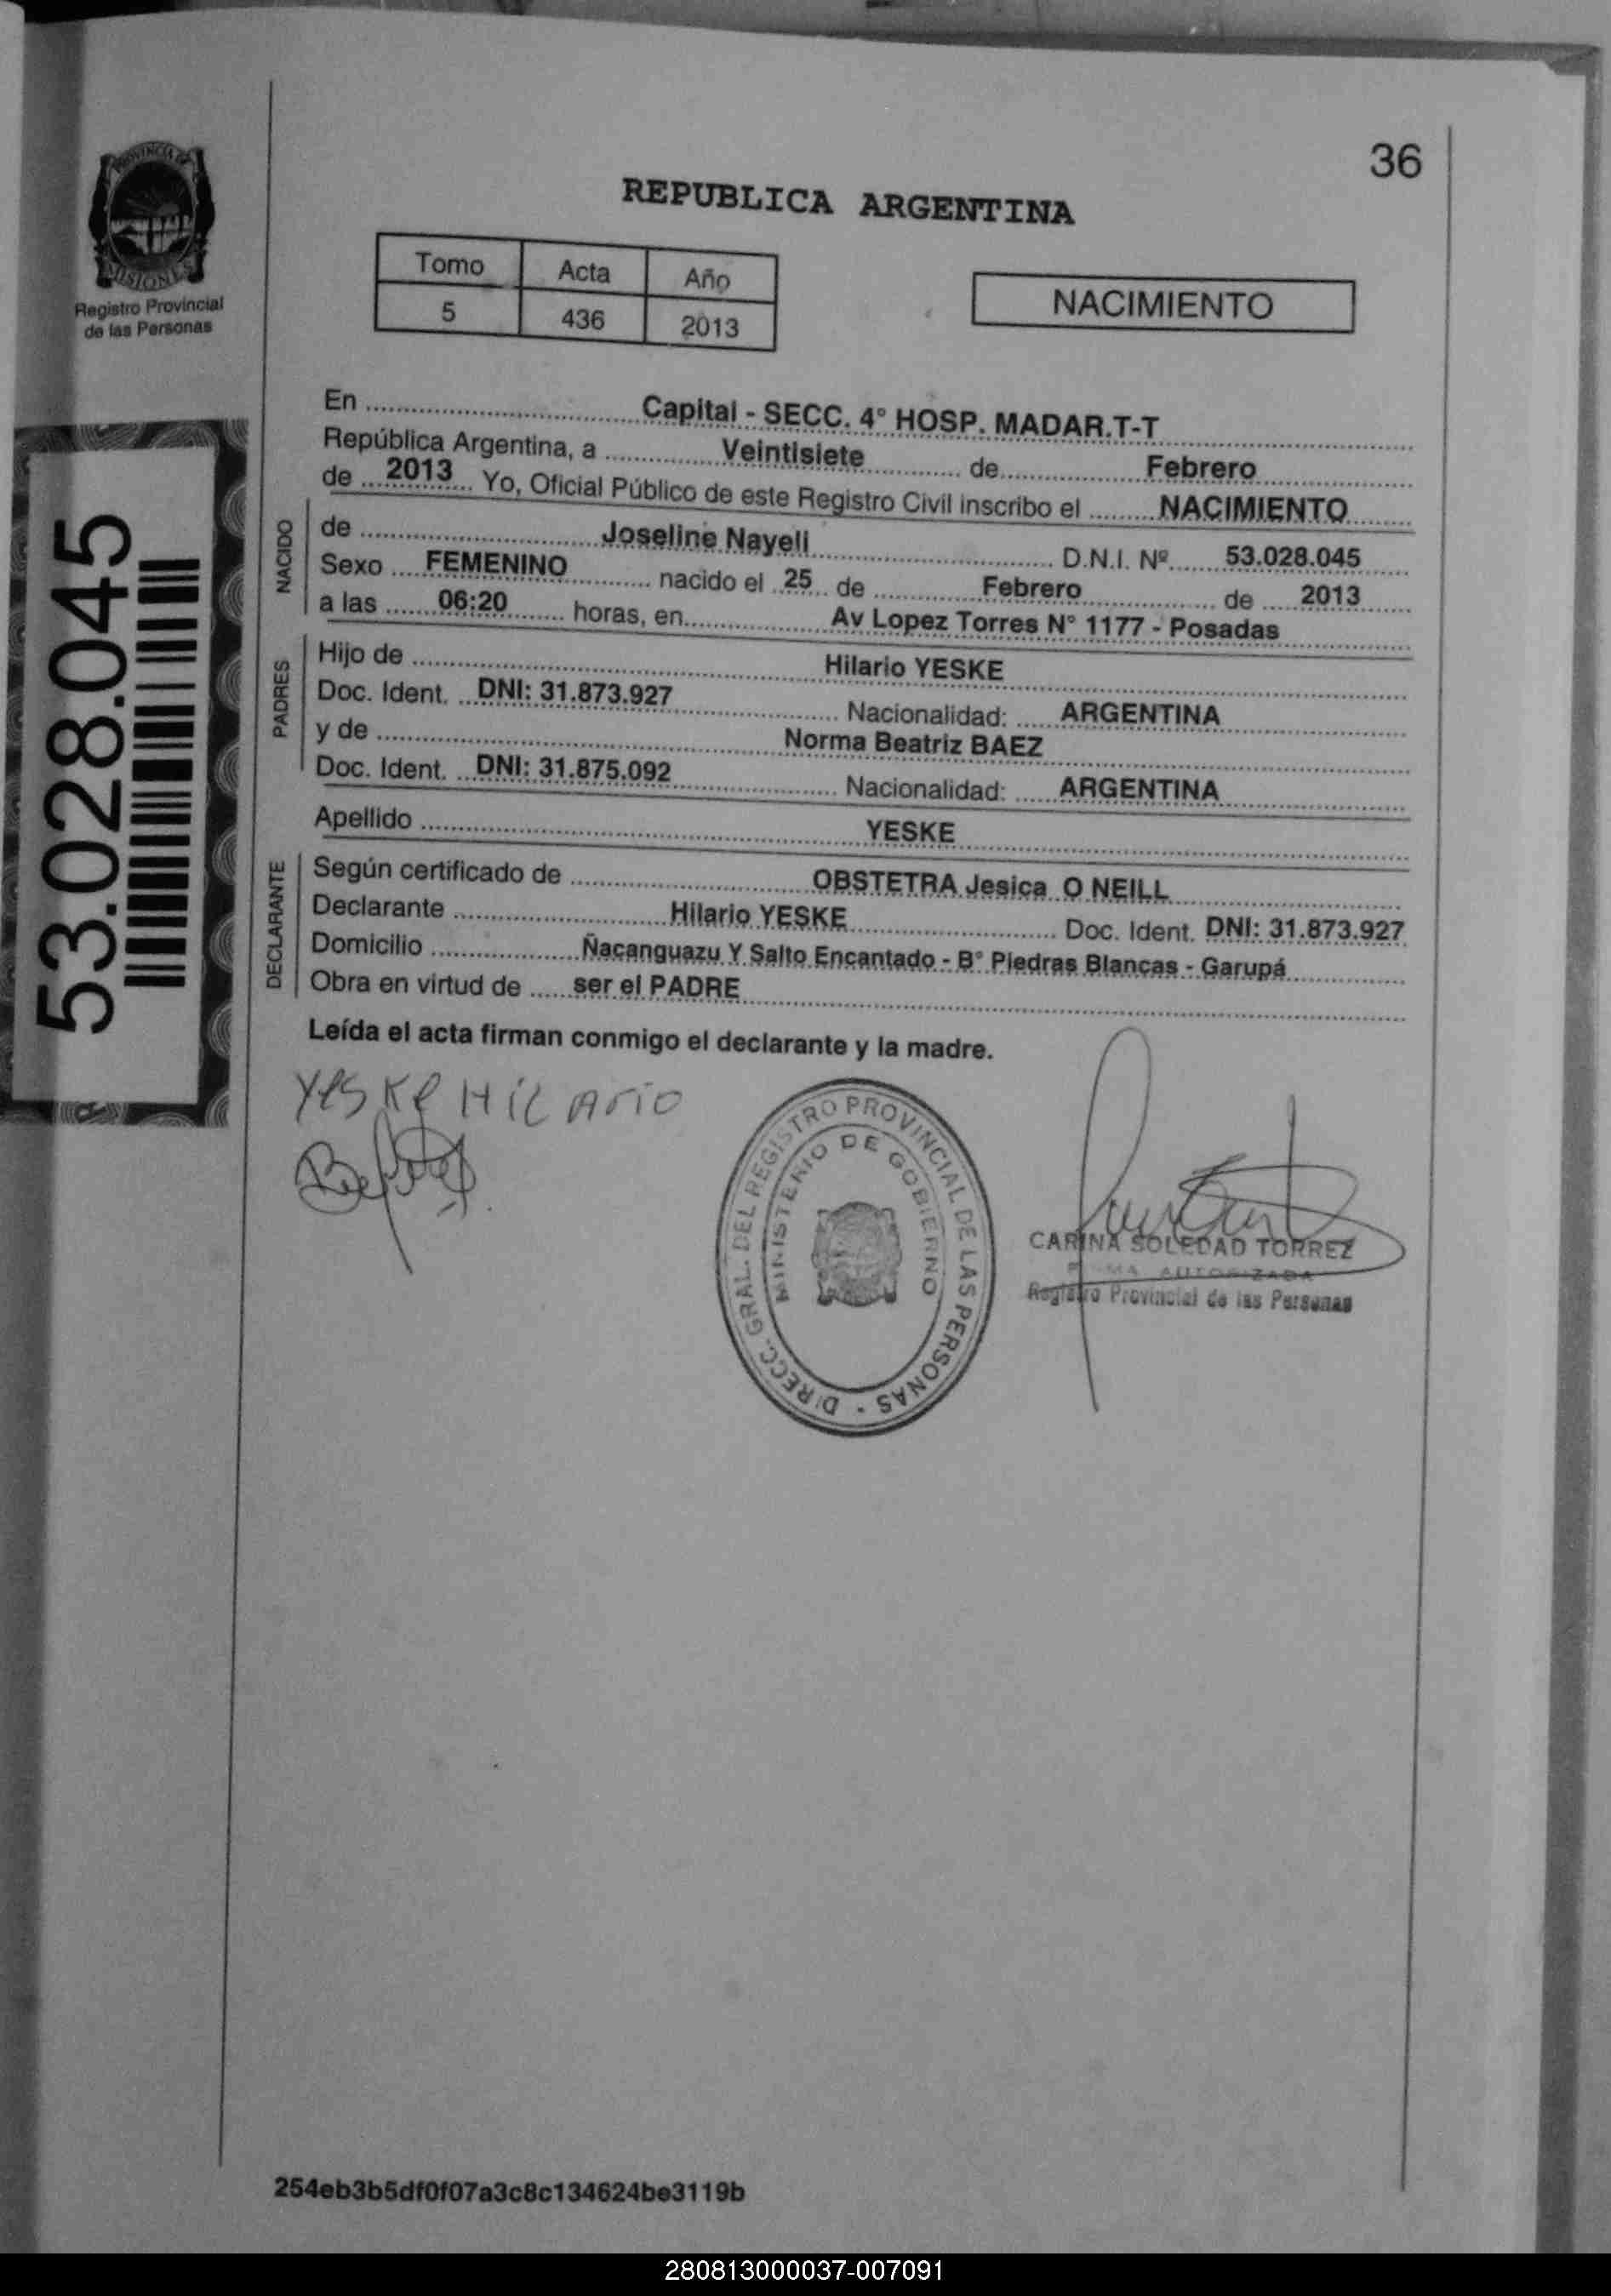 36
PROVINCIA DE
MISIONES
Registro Provincial
de las Personas
REPUBLICA ARGENTINA
Tomo Acta Año
5 436 2013
NACIMIENTO
53.028.045
En Capital - SECC. 4° HOSP. MADAR.T-T
República Argentina, a Veintisiete de Febrero
de 2013 Yo, Oficial Público de este Registro Civil inscribo el NACIMIENTO
NACIDO
de Joseline Nayeli D.N.I. Nº 53.028.045
Sexo FEMENINO nacido el 25 de Febrero de 2013
a las 06:20 horas, en Av Lopez Torres N° 1177 - Posadas
PADRES
Hijo de Hilario YESKE
Doc. Ident. DNI: 31.873.927 Nacionalidad: ARGENTINA
y de Norma Beatriz BAEZ
Doc. Ident. DNI: 31.875.092 Nacionalidad: ARGENTINA
Apellido YESKE
DECLARANTE
Según certificado de OBSTETRA Jesica O NEILL
Declarante Hilario YESKE Doc. Ident. DNI: 31.873.927
Domicilio Ñacanguazu Y Salto Encantado - B° Piedras Blancas - Garupá
Obra en virtud de ser el PADRE
Leída el acta firman conmigo el declarante y la madre.
Yeske Hilario
DIRECC. GRAL. DEL REGISTRO PROVINCIAL DE LAS PERSONAS -
MINISTERIO DE GOBIERNO
CARINA SOLEDAD TORREZ
AUTORIZADA
Registro Provincial de las Personas
254eb3b5df0f07a3c8c134624be3119b
280813000037-007091